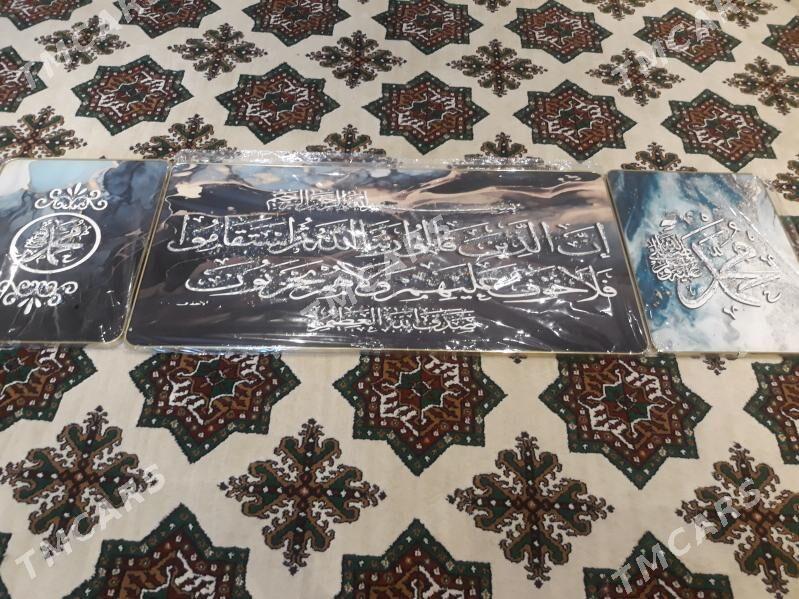 بسم الله الرحمن الرحيم
إن الذين قالوا ربنا الله ثم استقاموا
فلا خوف عليهم ولا هم يحزنون
صدق الله العظيم
محمد
محمد
TMCARS
TMCARS
TMCARS
TMCARS
TMCARS
TMCARS
TMCARS
TMCARS
TMCARS